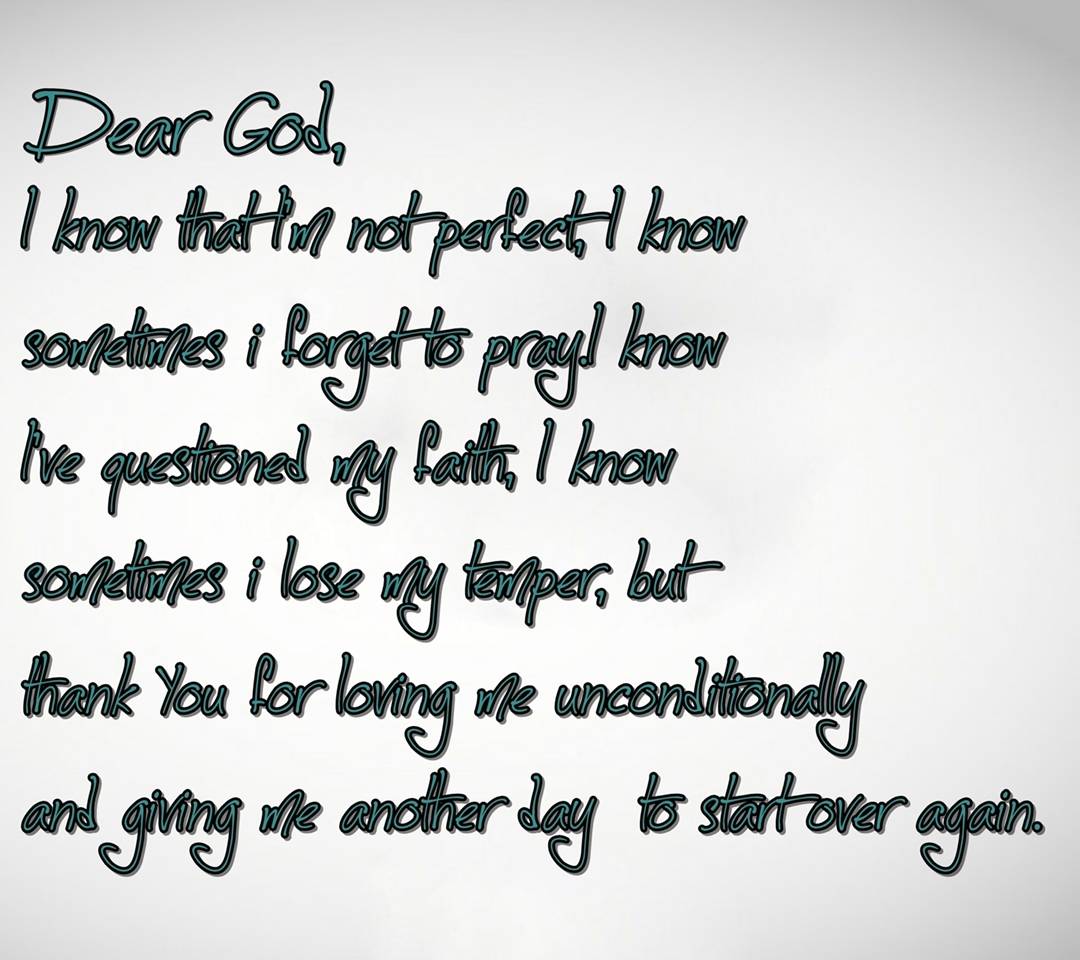 Dear God,
I know that I'm not perfect, I know
sometimes i forget to pray.I know
I've questioned my faith, I know
sometimes i lose my temper, but
thank You for loving me unconditionally
and giving me another day to start over again.